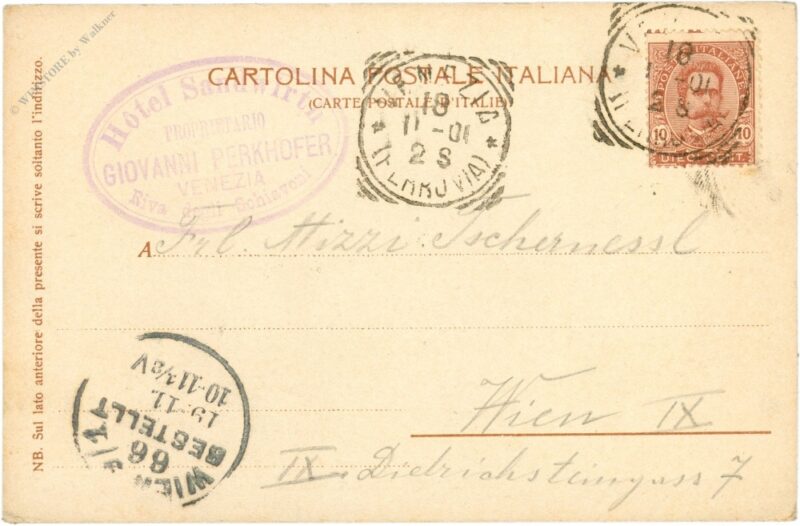 © WIENSTORE by Walkner
NB. Sul lato anteriore della presente si scrive soltanto l'indirizzo.
CARTOLINA POSTALE ITALIANA
(CARTE POSTALE D'ITALIE)
Hôtel Sandwirth
PROPRIETARIO
GIOVANNI PERKHOFER
VENEZIA
Riva degli Schiavoni
18
11-01
2 S
(FERROVIA)
POSTE ITALIANE
18
10 10
A Frl. Mizzi Tschernessl
Wien IX
IX. Dietrichsteingasse 7
WIEN 9/1
66
BESTELLT
19.11
10-11½V